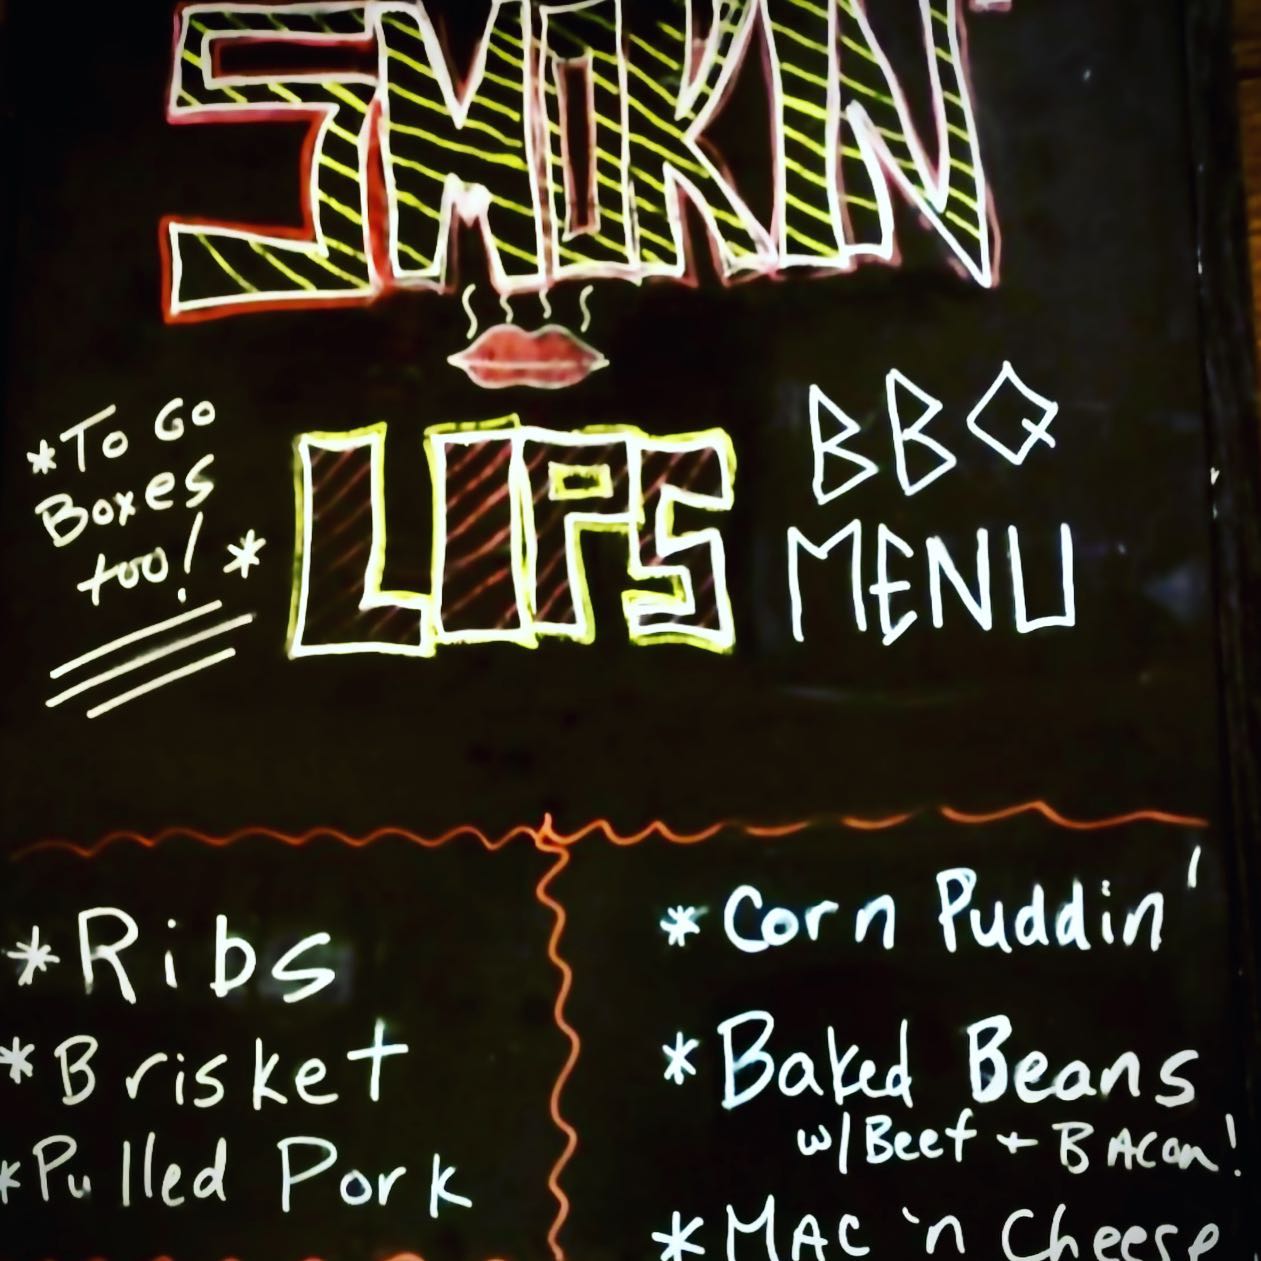 SMOKIN'
*To Go
Boxes
too! *
LIPS
BBQ
MENU
*Ribs
*Brisket
*Pulled Pork
*Corn Puddin'
*Baked Beans
w/Beef + BAcon!
*MAC 'n Cheese